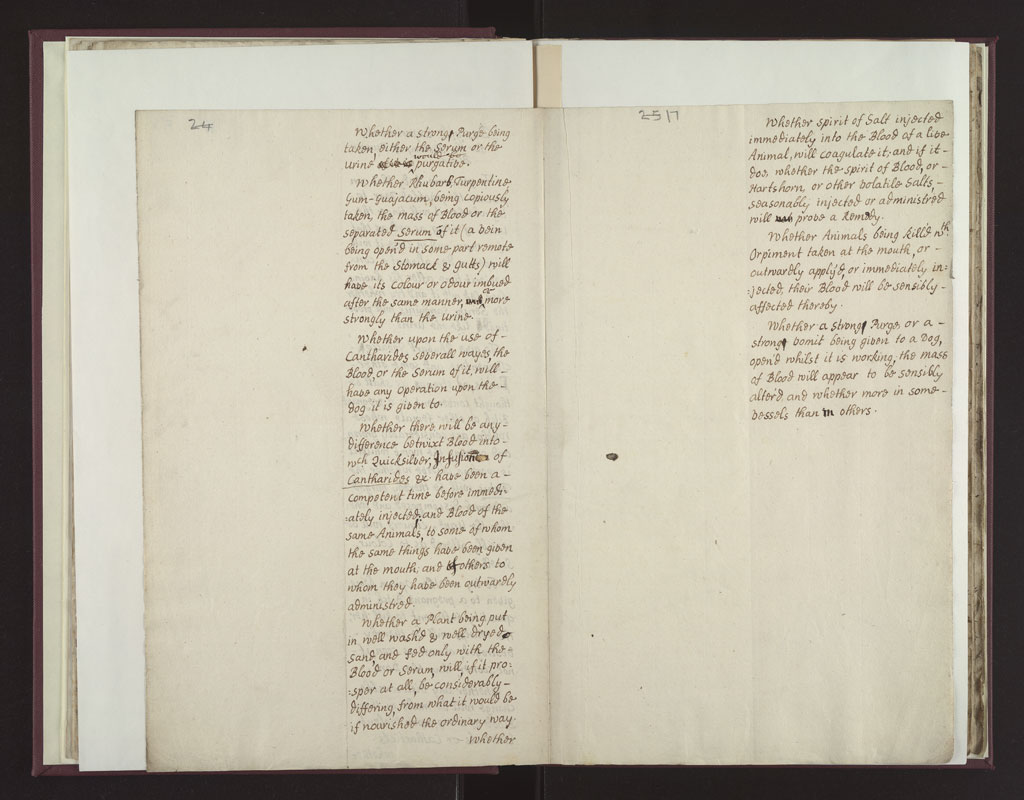 24
Whether a strong Purge being
taken, either the Serum or the
would be
urine purgative.
Whether Rhubarb, Turpentine
Gum-Guajacum, being copiously
taken, the mass of Blood or the
separated Serum of it (a vein
being open'd in some part remote
from the Stomack & Gutts) will
have its colour or odour imbued
after the same manner, or more
strongly than the urine.
Whether upon the use of-
Cantharides severall wayes the
Blood, or the Serum of it, will-
have any Operation upon the-
Dog it is given to.
Whether there will be any-
difference betwixt Blood into-
wch Quicksilver, Infusion of
Cantharides &c have been a-
competent time before immedi:
:ately injected; and Blood of the
same Animals, to some of whom
the same things have been given
at the mouth, and others to
whom they have been outwardly
administred.
Whether a Plant being put
in well wash'd & well dryed
Sand, and fed only with the-
Blood or Serum, will, if it pro:
:sper at all, be considerably-
differing, from what it would be
if nourished the ordinary way.
Whether
25 17
Whether spirit of Salt injected
immediately into the Blood of a live
Animal, will coagulate it; and if it-
dos, whether the spirit of Blood, or-
Hartshorn, or other volatile Salts,-
seasonably injected or administred
will prove a Remedy.
Whether Animals being kill'd wth
Orpiment taken at the mouth, or-
outwardly apply'd, or immediately in:
:jected, their Blood will be sensibly-
affected thereby.
Whether a strong Purge, or a-
strong vomit being given to a Dog,
open'd whilst it is working, the mass
of Blood will appear to be sensibly
alter'd and whether more in some-
vessels than in others.